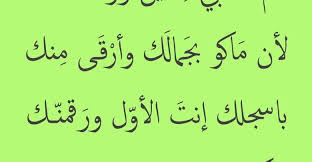 لأن مَاكو بجَمالَك وأرْقَى مِنك
باسجلك إنتَ الأوّل ورَقمنّـك